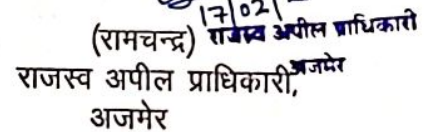 17/02/
(रामचन्द्र) राजस्व अपील प्राधिकारी
राजस्व अपील प्राधिकारी, अजमेर
अजमेर